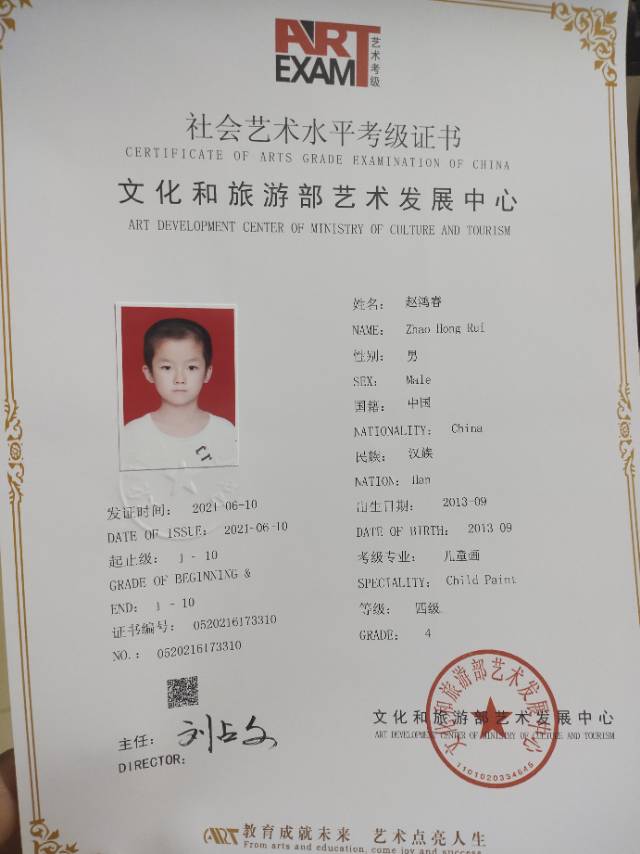 ART
EXAM
艺术考级
社会艺术水平考级证书
CERTIFICATE OF ARTS GRADE EXAMINATION OF CHINA
文化和旅游部艺术发展中心
ART DEVELOPMENT CENTER OF MINISTRY OF CULTURE AND TOURISM
姓名： 赵鸿睿
NAME： Zhao Hong Rui
性别： 男
SEX： Male
国籍： 中国
NATIONALITY： China
民族： 汉族
NATION： Han
出生日期： 2013-09
DATE OF BIRTH： 2013 09
考级专业： 儿童画
SPECTALITY： Child Paint
等级： 四级
GRADE： 4
发证时间： 2021-06-10
DATE OF ISSUE： 2021-06-10
起止级： 1 - 10
GRADE OF BEGINNING &
END： 1 - 10
证书编号： 0520216173310
NO.： 0520216173310
主任： 刘占文
DIRECTOR：
文化和旅游部艺术发展中心
ART DEVELOPMENT CENTER OF MINISTRY OF CULTURE AND TOURISM
文化和旅游部艺术发展中心
1101020334645
ART 教育成就未来 艺术点亮人生
From arts and education, come joy and success